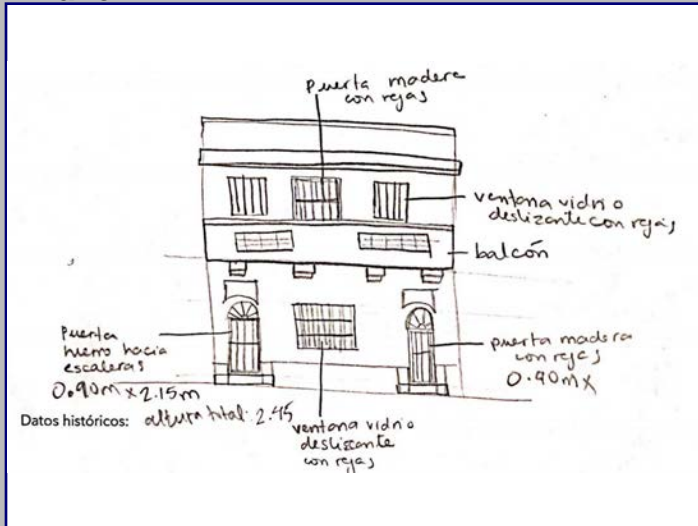 puerta madera
con rejas
ventana vidrio
deslizante con rejas
balcón
Puerta
hierro hacia
escaleras
0.90m x 2.15m
puerta madera
con rejas
0.90m x
Datos históricos: altura total: 2.45
ventana vidrio
deslizante
con rejas